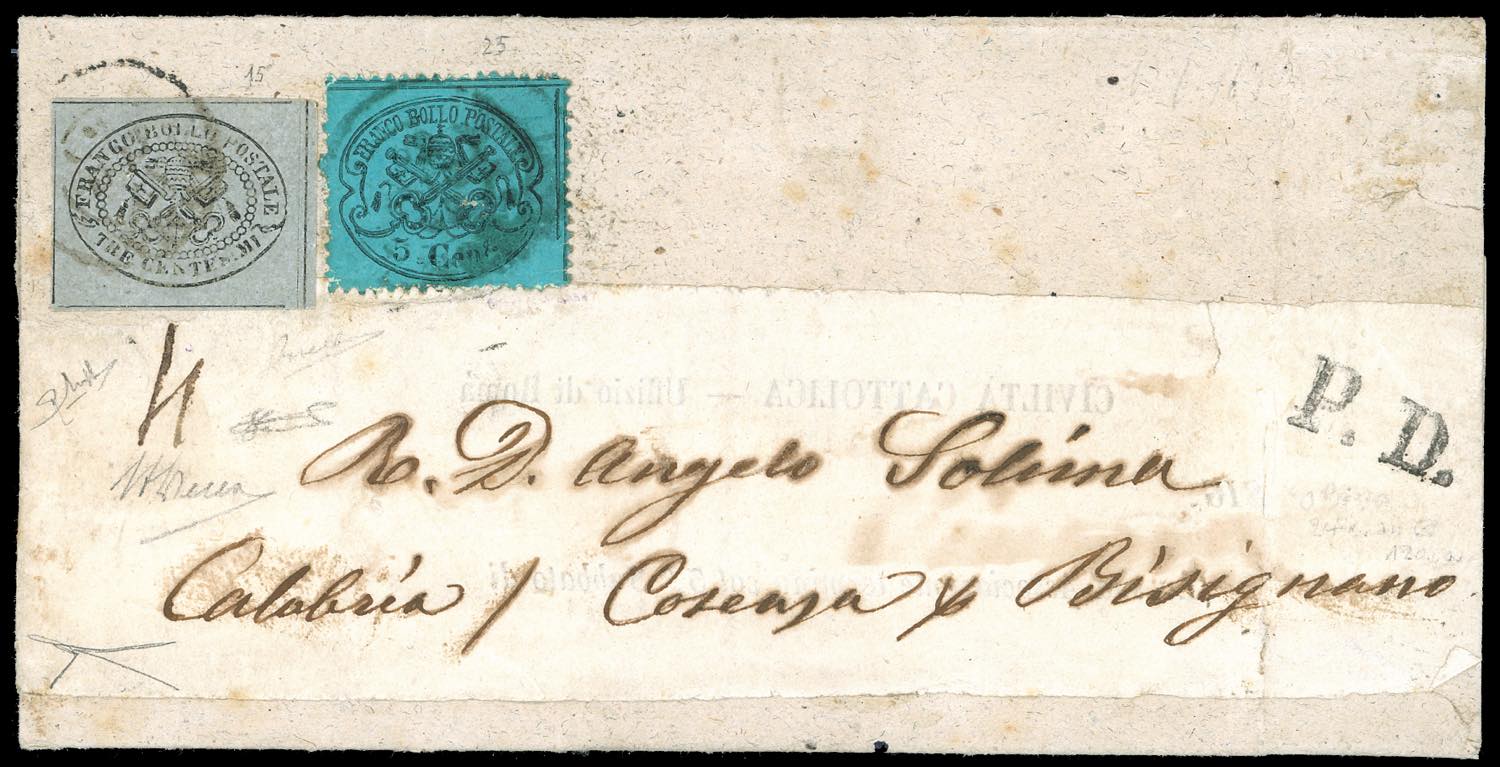 25
15
FRANCO BOLLO POSTALE
TRE CENTESIMI
FRANCO BOLLO POSTALE
5 Cent.
CIVILTÀ CATTOLICA — Uffizio di Roma
P. D.
R. D. Angelo Solima
Calabria / Cosenza x Bisignano